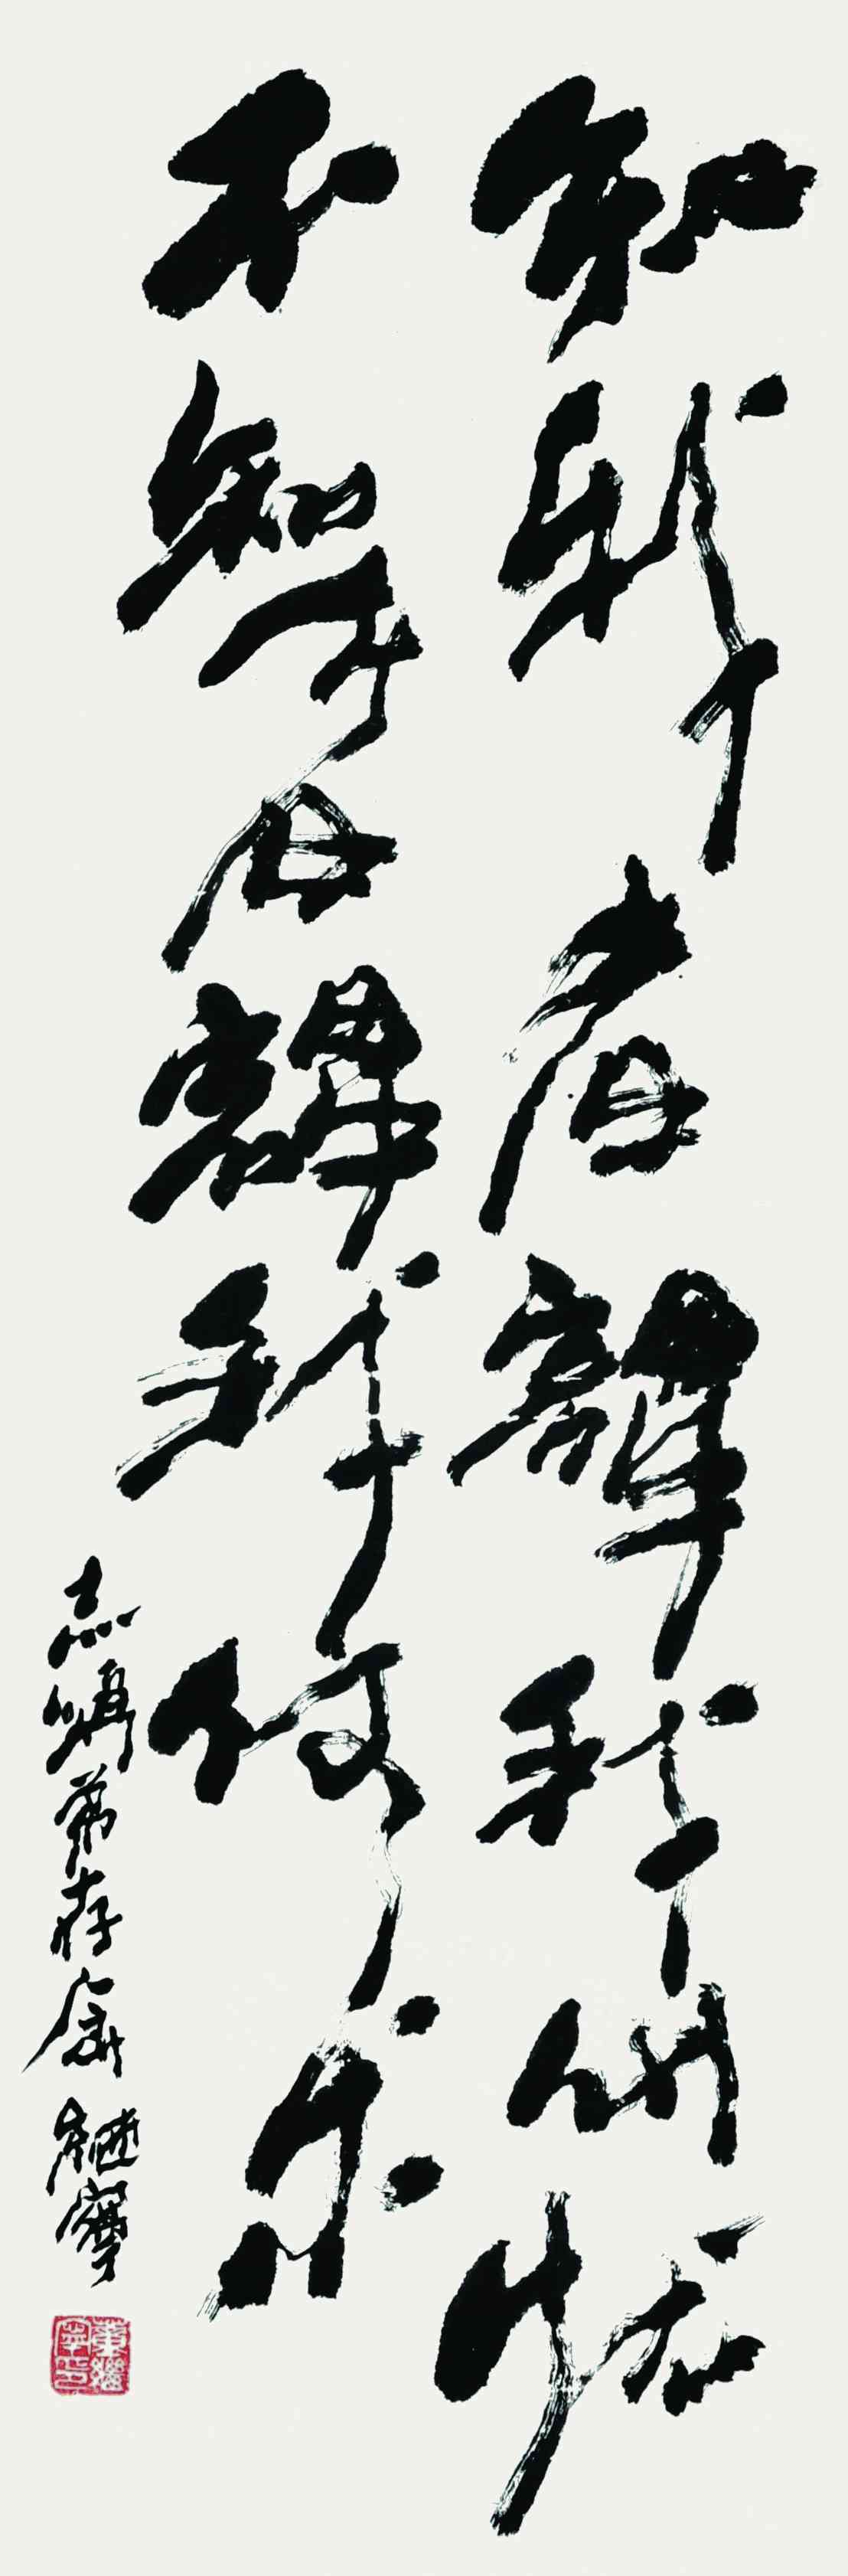 知我者謂我心忧
不知我者謂我何求
志弟存 繼寧
董繼寧印